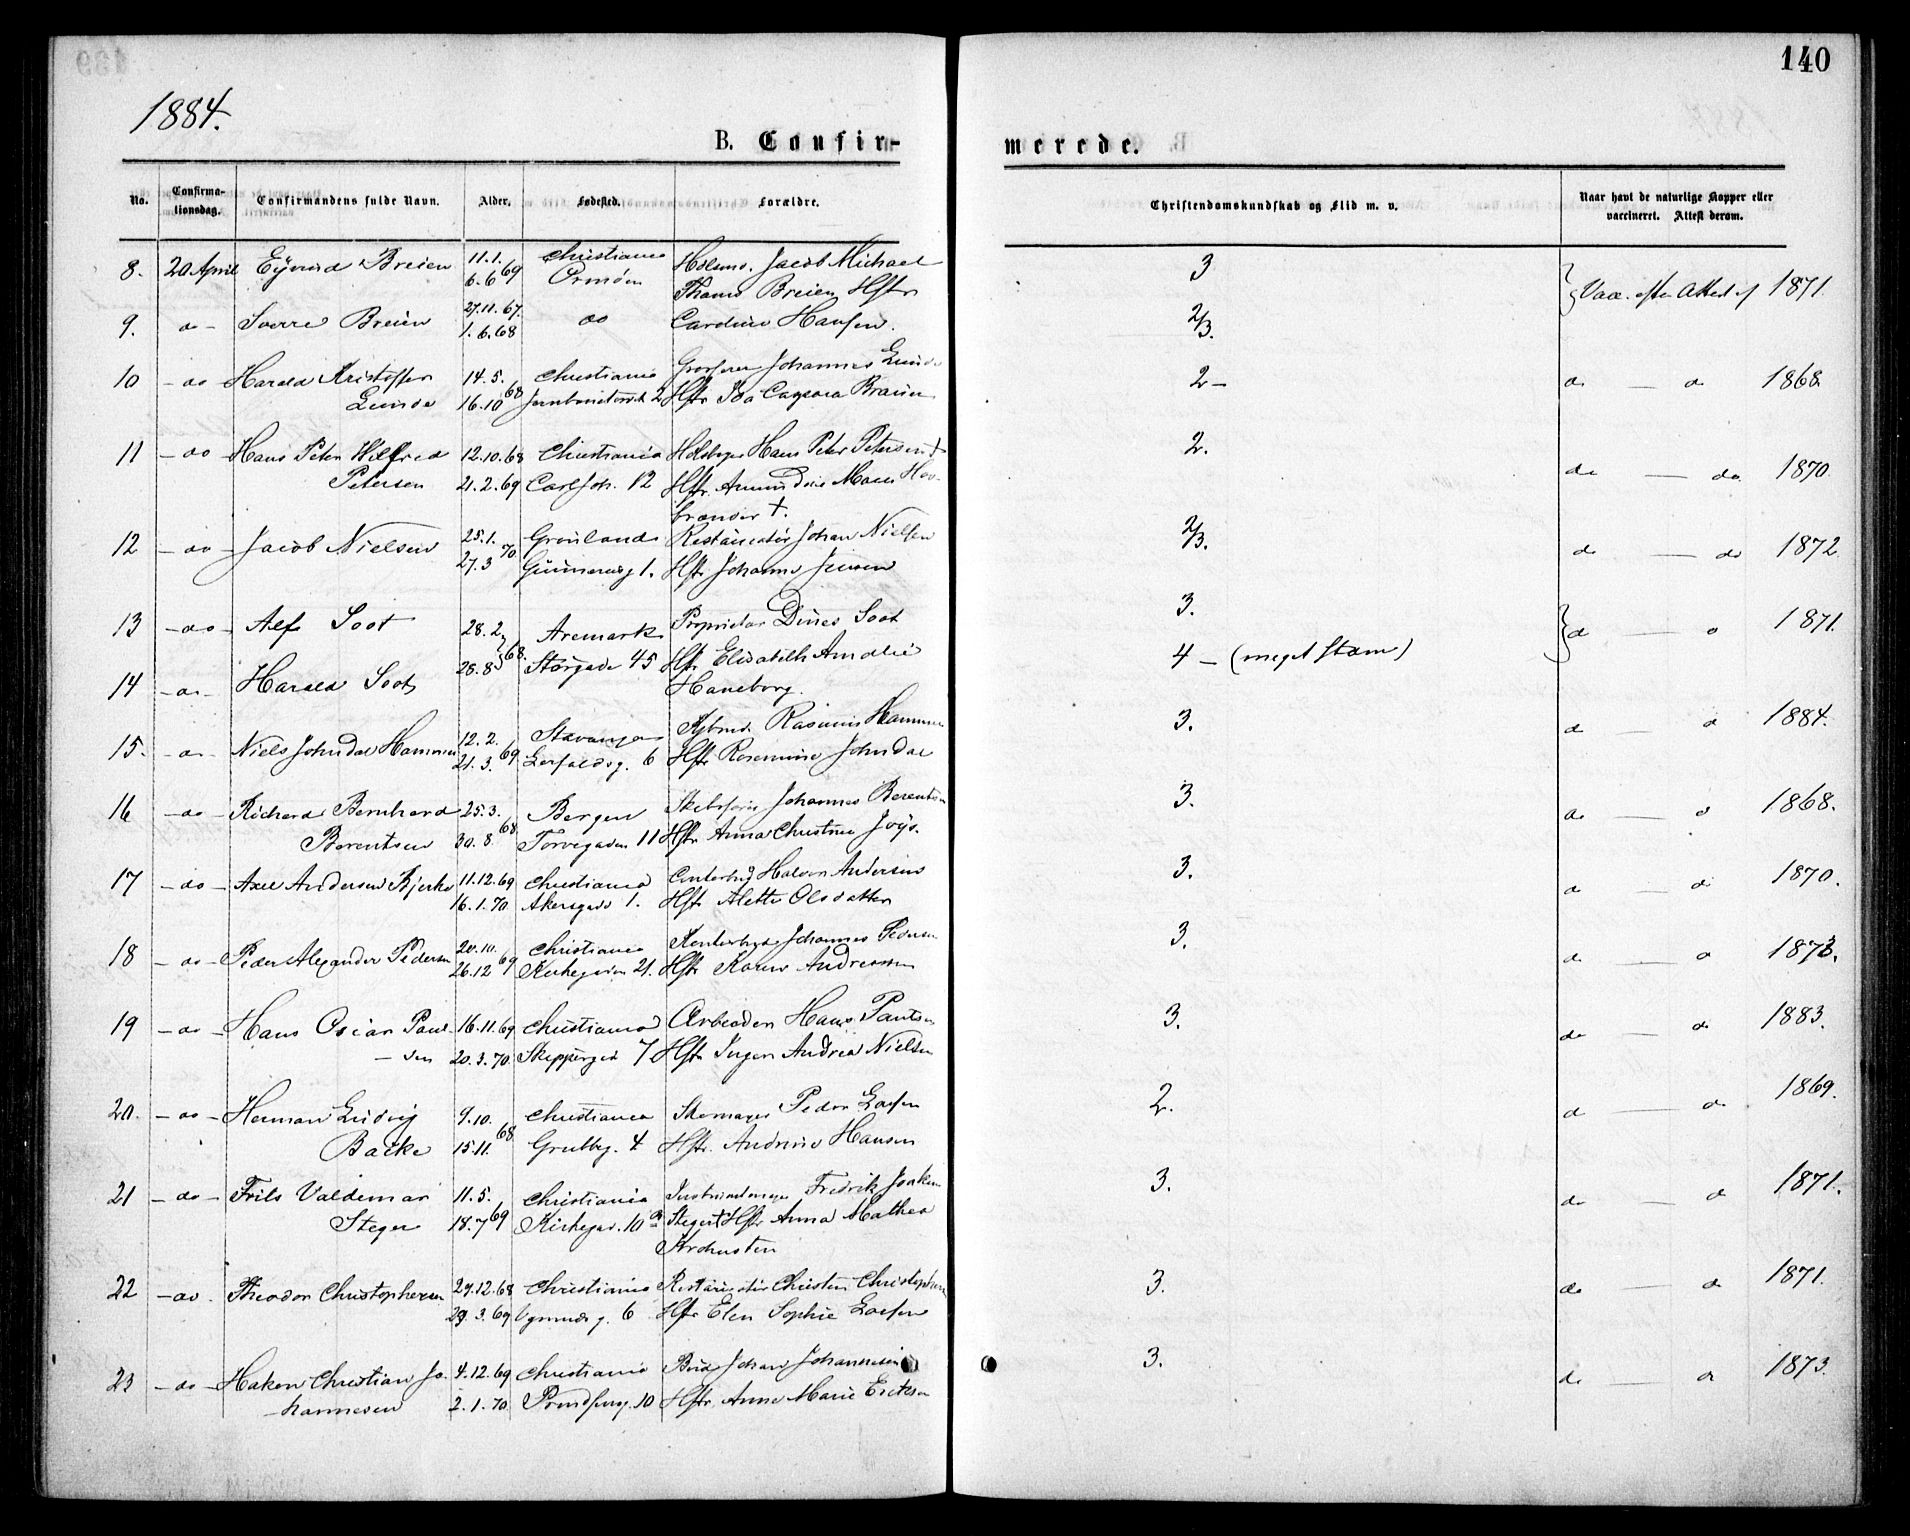 140
1884.
B. Confir-
merede.
No.
Confirma-
tionsdag.
Confirmandens fulde Navn.
Alder.
Fødested.
Forældre.
Christendomskundskab og Flid m. v.
Naar havt de naturlige Kopper eller
vaccineret. Attest derom.
8. 20 April Eyvind Breien 11.1. Christiania Jacob Michael 3
6.6 69 Ormøen Thams Breien Hstr Vacc. efter Attest af 1871.
9. do - Sverre Breien 27.11.67. do Caroline Hansen. 2/3.
1.6.68
10 - do Harald Kristoffer 14.5. Christiania Grosserer Johannes Lunde 2 - do — do 1868.
Lunde 16.10 68 2 Hstr Ida
11 - do Hans Peter Wilfred 12.10.68 Christiania Hans Peter Petersen † 2.
Petersen 21.2.69 Carl Joh. 12 Hstr. do — do 1870.
†.
12 - do - Jacob Nielsen 25.1. Grønlands Restauratør Johan Nielsen 2/3. do — do 1872.
27.3 70. 1. Hstr Johanne Jensen
13 - do - Alf Soot 28.2. Aremark Proprietær Dines Soot 3. do — do 1871.
28.8 68. Storgade 45 Hstr Elisabeth Amalie 4 - (meget stam)
14 - do - Harald Soot Haneborg.
15. - do - Niels Johndal Hammer 12.2. Stavanger Rasmus Hammer 3. do — do 1884.
21.3. 69. 6 Hstr Rosemine Johndal
16 - do - Richard Bernhard 25.3. Bergen Johannes Berentsen 3. do — do 1868.
Berentsen 30.8 68. Torvegaden 11 Hstr Anna Christine
17 - do - Axel Andersen Bjerke 11.12.69 Christiania Halvor Andersen 3. do — do 1870.
16.1.70 Akersgade 1. Hstr Alette Olsdatter
18 - do - Peder Alexander Pedersen 20.10. Christiania Johannes Pedersen 3. do — do 1873.
26.12 69 Kirkegaden 21. Hstr Karen Andreassen
19 - do - Hans Oscar Paul- 16.11.69 Christiania Arbeider Hans Paulsen 3. do — do 1883.
- sen 20.3.70. Skippergd 7 Hstr Inger Andrea Nielsen
20. - do - Herman Ludvig 9.10. Christiania Skomager Peder Larsen 2. do — do 1869.
Backe 15.11. 68 Grubbg. 4 Hstr. Andrine Hansen
21 - do - Frits Valdemar 11.5. Christiania Fredrik Joakim 3. do — do 1871.
Steger 18.7 69 Kirkegad. 10 Steger † Hstr Anna Mathea
22 - do. Theodor Christophersen 29.12.68 Christiania Restauratør Christen Christophersen 3. do — do 1871.
29.3.69 6 Hstr Elen Sophie Larsen
23 - do - Hakon Christian Jo- 4.12.69 Christiania Bud Johan Johannesen 3. do — do 1873.
hannesen 2.1.70. 10 Hstr. Anne Marie Eriksen